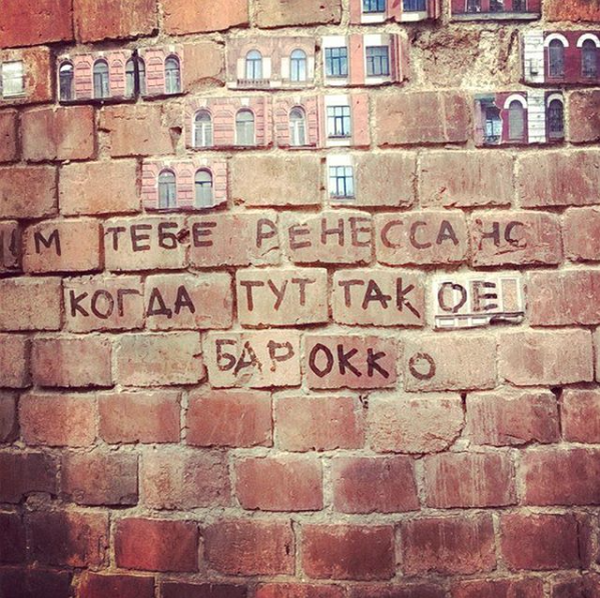 М ТЕБЕ РЕНЕССАНС
КОГДА ТУТ ТАКОЕ
БАРОККО